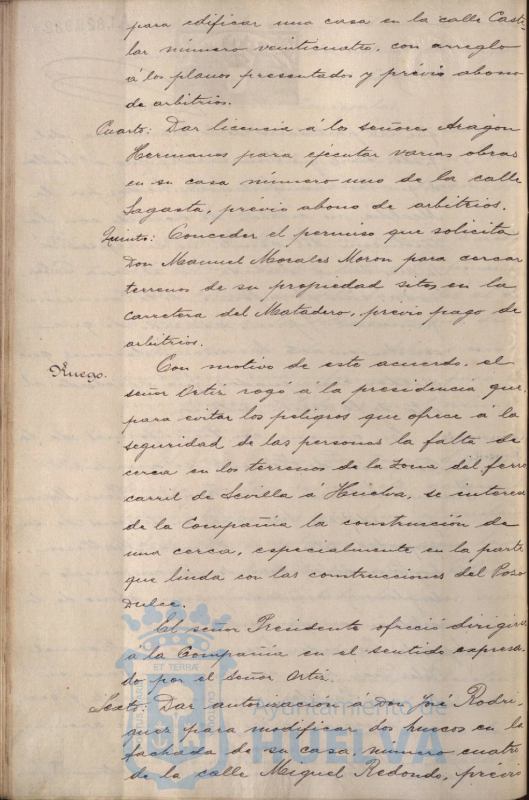 para edificar una casa en la calle Caste-
lar número veinticuatro, con arreglo
á los planos presentados y prévio abono
de arbitrios.
Cuarto: Dar licencia á los señores Aragon
Hermanos para ejecutar varias obras
en su casa número uno de la calle
Sagasta, prévio abono de arbitrios.
Quinto: Conceder el permiso que solicita
Don Manuel Morales Moron para cercar
terrenos de su propiedad sitos en la
carretera del Matadero, prévio pago de
arbitrios.
Ruego.
Con motivo de este acuerdo, el
señor Ortiz rogó á la presidencia que,
para evitar los peligros que ofrece á la
seguridad de las personas la falta de
cerca en los terrenos de la zona del ferro
carril de Sevilla á Huelva, se interese
de la Compañia la construcción de
una cerca, especialmente en la parte
que linda con las construcciones del Pozo
Dulce.
El señor Presidente ofreció dirigirse
á la Compañia en el sentido expresa-
do por el señor Ortiz.
Sexto: Dar autorización á Don José Rodri-
guez para modificar dos huecos en la
fachada de su casa, número cuatro
de la calle Miguel Redondo, prévio
Ayuntamiento de
HUELVA
ET TERRÆ